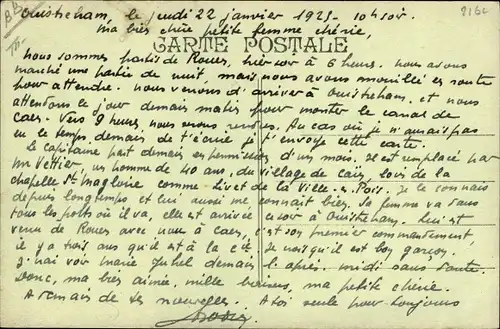 Ouistreham, le jeudi 22 janvier 1925 - 10h soir.
Ma bien chère petite femme chérie,
CARTE POSTALE
Nous sommes partis de Rouen, hier soir à 6 heures. Nous avons
marché une partie de nuit, mais nous avons mouillé en route
pour attendre. Nous venons d'arriver à Ouistreham. et nous
attendons le jour demain matin pour monter le canal de
Caen. Vers 9 heures nous serons rendus. Au cas où je n'aurais pas
eu le temps demain de t'écrire je t'envoye cette carte.
Le capitaine part demain en permission d'un mois. Il est remplacé par
Mr Vettier, un homme de 40 ans, du village de loin de la
chapelle St Magloire comme Livet de la Ville-s-Pois. Je le connais
depuis longtemps et lui aussi me connait bien. Sa femme va dans
tous les ports où il va, elle est arrivée ce soir à Ouistreham. Lui est
venu de Rouen avec nous à Caen, c'est son premier commandement,
il y a trois ans qu'il est à la Cie. Je vois qu'il est bon garçon.
J'irai voir Marie demain l'après-midi sans faute.
Donc, ma bien aimée, mille baisers, ma petite chérie.
A demain de tes nouvelles. A toi seule pour toujours